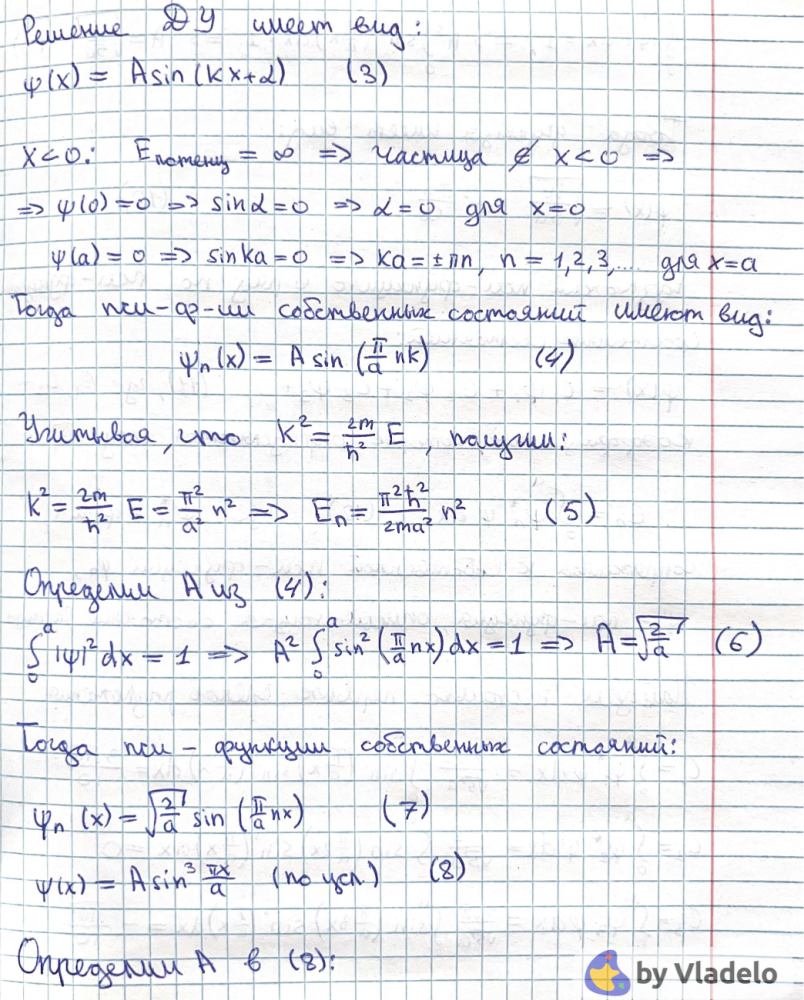 Решение ДУ имеет вид:
ψ(x) = A sin(kx+α) (3)
x<0: Eпотенц = ∞ => частица ∉ x<0 =>
=> ψ(0)=0 => sinα=0 => α=0 для x=0
ψ(a)=0 => sin ka=0 => ka=±πn, n = 1,2,3,... для x=a
Тогда пси-ф-ии собственных состояний имеют вид:
ψₙ(x) = A sin (π/a nk) (4)
Учитывая, что k² = 2m/ħ² E, получим:
k² = 2m/ħ² E = π²/a² n² => Eₙ = π²ħ²/2ma² n² (5)
Определим A из (4):
∫₀ᵃ |ψ|² dx = 1 => A² ∫₀ᵃ sin² (π/a nx) dx = 1 => A = √(2/a) (6)
Тогда пси-функции собственных состояний:
ψₙ (x) = √(2/a) sin (π/a nx) (7)
ψ(x) = A sin³ πx/a (по усл.) (8)
Определим A в (8):
by Vladelo